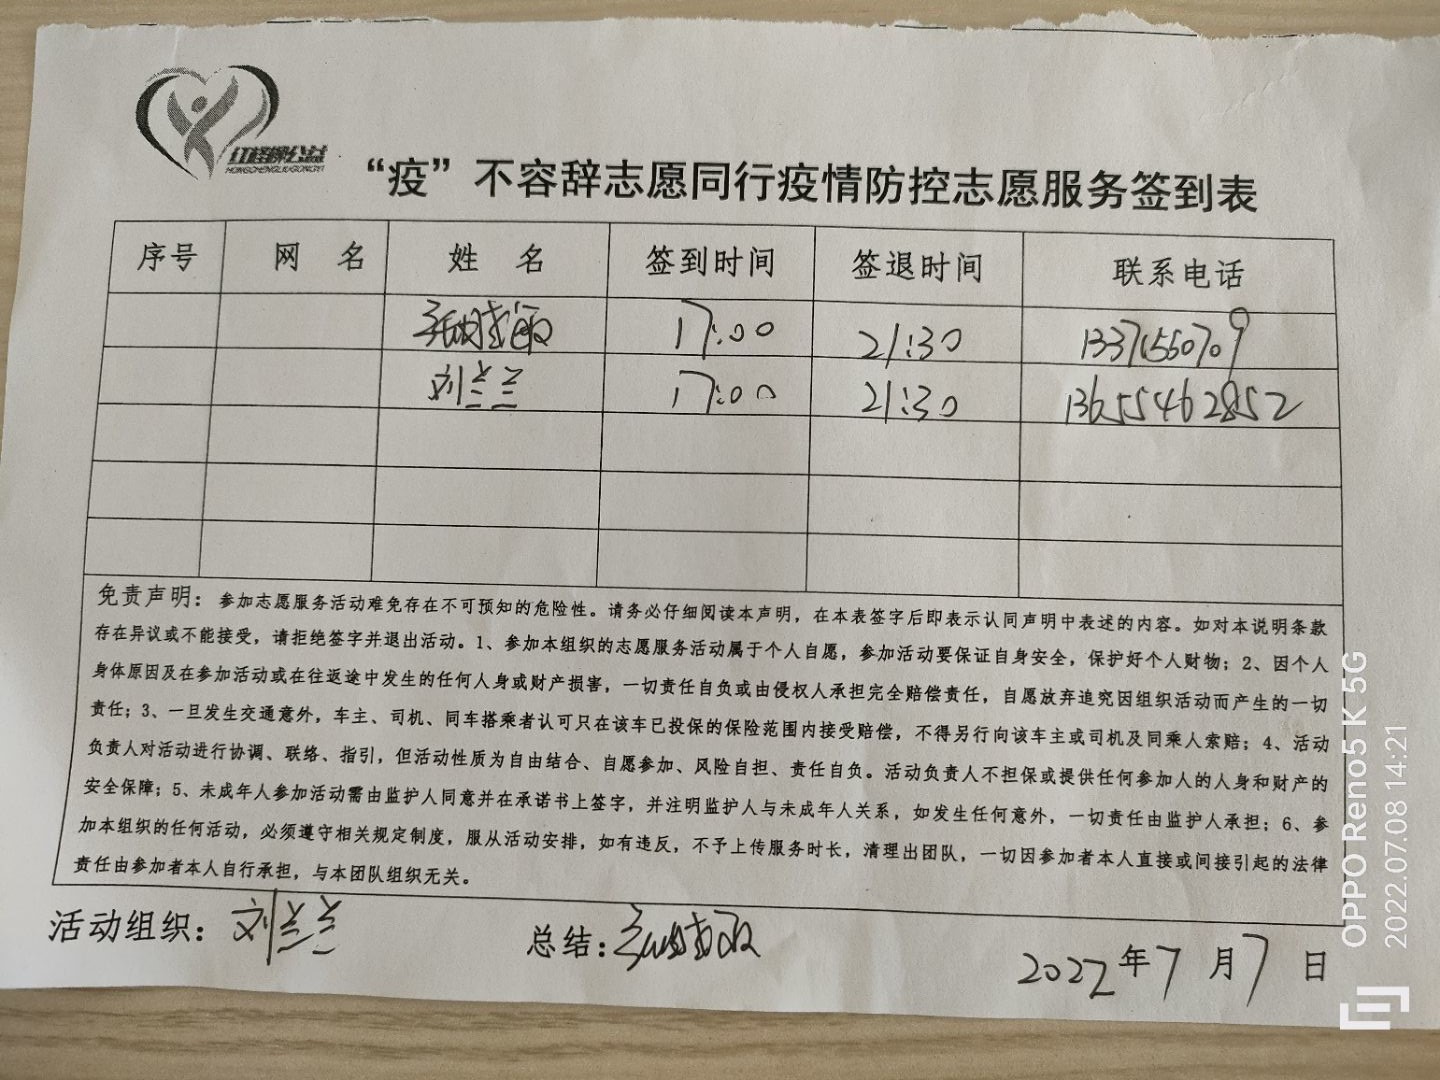 红柽柳公益
HONGCHENGLIUGONGYI
“疫”不容辞志愿同行疫情防控志愿服务签到表
序号 网名 姓名 签到时间 签退时间 联系电话
17:00 21:30
刘兰兰 17:00 21:30 13655462852
免责声明：参加志愿服务活动难免存在不可预知的危险性。请务必仔细阅读本声明，在本表签字后即表示认同声明中表述的内容。如对本说明条款
存在异议或不能接受，请拒绝签字并退出活动。1、参加本组织的志愿服务活动属于个人自愿，参加活动要保证自身安全，保护好个人财物；2、因个人
身体原因及在参加活动或在往返途中发生的任何人身或财产损害，一切责任自负或由侵权人承担完全赔偿责任，自愿放弃追究因组织活动而产生的一切
责任；3、一旦发生交通意外，车主、司机、同车搭乘者认可只在该车已投保的保险范围内接受赔偿，不得另行向该车主或司机及同乘人索赔；4、活动
负责人对活动进行协调、联络、指引，但活动性质为自由结合、自愿参加、风险自担、责任自负。活动负责人不担保或提供任何参加人的人身和财产的
安全保障；5、未成年人参加活动需由监护人同意并在承诺书上签字，并注明监护人与未成年人关系，如发生任何意外，一切责任由监护人承担；6、参
加本组织的任何活动，必须遵守相关规定制度，服从活动安排，如有违反，不予上传服务时长，清理出团队，一切因参加者本人直接或间接引起的法律
责任由参加者本人自行承担，与本团队组织无关。
活动组织：刘兰兰 总结： 2022年7月7日
OPPO Reno5 K 5G
2022.07.08 14:21